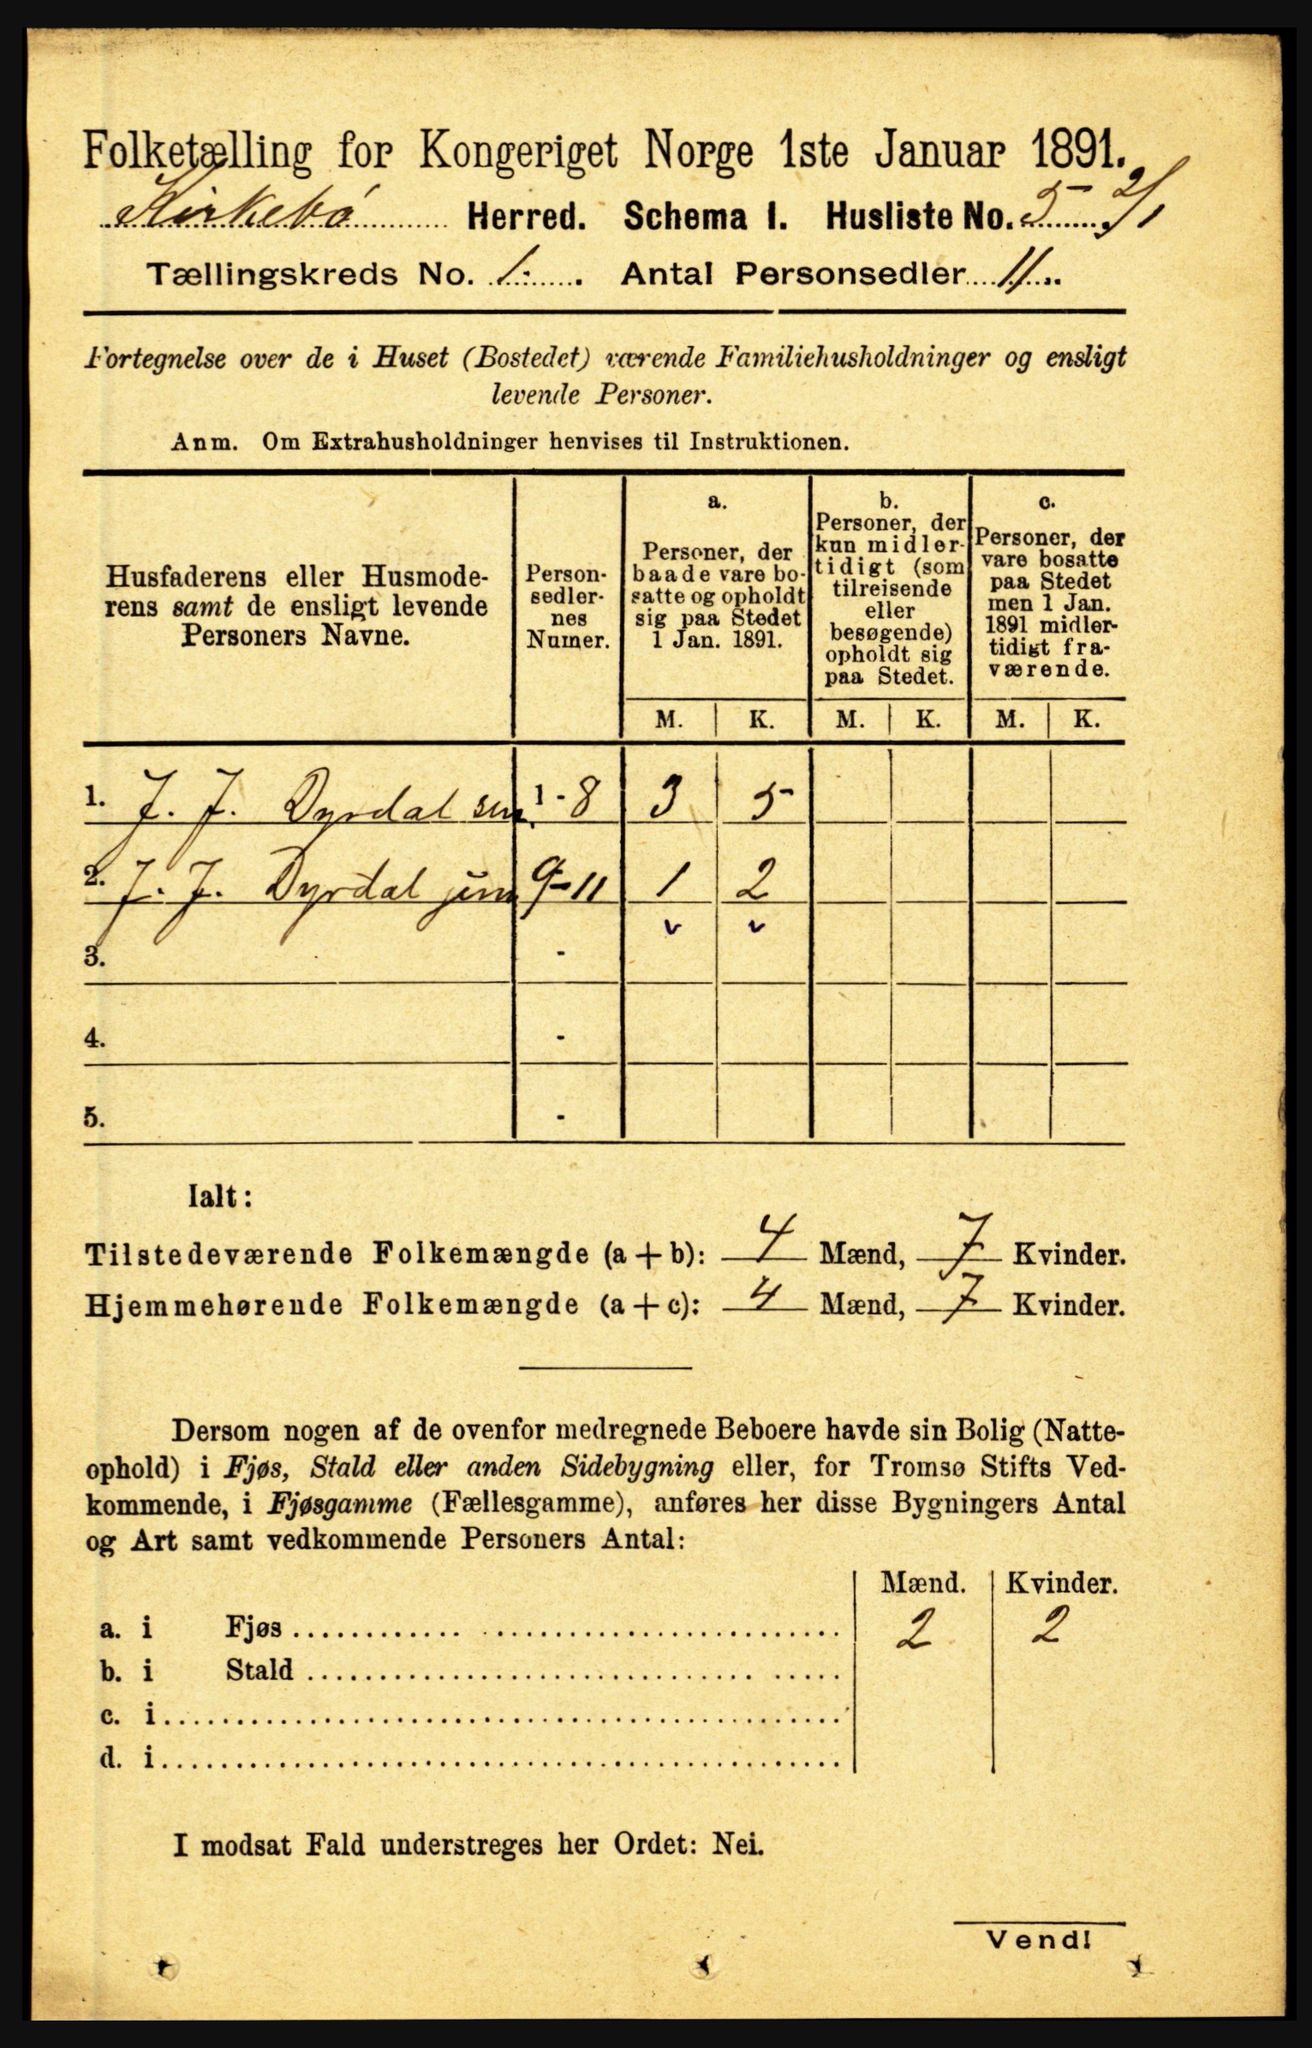 Folketælling for Kongeriget Norge 1ste Januar 1891.
Kirkebö Herred. Schema I. Husliste No. 5 2/1
Tællingskreds No. 1. Antal Personsedler 11.
Fortegnelse over de i Huset (Bostedet) værende Familiehusholdninger og ensligt
levende Personer.
Anm. Om Extrahusholdninger henvises til Instruktionen.
Husfaderens eller Husmode-
rens samt de ensligt levende
Personers Navne.
Person-
sedler-
nes
Numer.
a.
Personer, der
baade vare bo-
satte og opholdt
sig paa Stedet
1 Jan. 1891.
b.
Personer, der
kun midler-
tidigt (som
tilreisende
eller
besøgende)
opholdt sig
paa Stedet.
c.
Personer, der
vare bosatte
paa Stedet
men 1 Jan.
1891 midler-
tidigt fra-
værende.
M. K. M. K. M. K.
1. J. J. Dyrdal sen. 1-8 3 5
2. J. J. Dyrdal jun 9-11 1 2
v v
3. -
4. -
5. -
Ialt:
Tilstedeværende Folkemængde (a + b): 4 Mænd, 7 Kvinder.
Hjemmehørende Folkemængde (a + c): 4 Mænd, 7 Kvinder.
Dersom nogen af de ovenfor medregnede Beboere havde sin Bolig (Natte-
ophold) i Fjøs, Stald eller anden Sidebygning eller, for Tromsø Stifts Ved-
kommende, i Fjøsgamme (Fællesgamme), anføres her disse Bygningers Antal
og Art samt vedkommende Personers Antal:
Mænd. Kvinder.
a. i Fjøs 2 2
b. i Stald
c. i
d. i
I modsat Fald understreges her Ordet: Nei.
Vend!